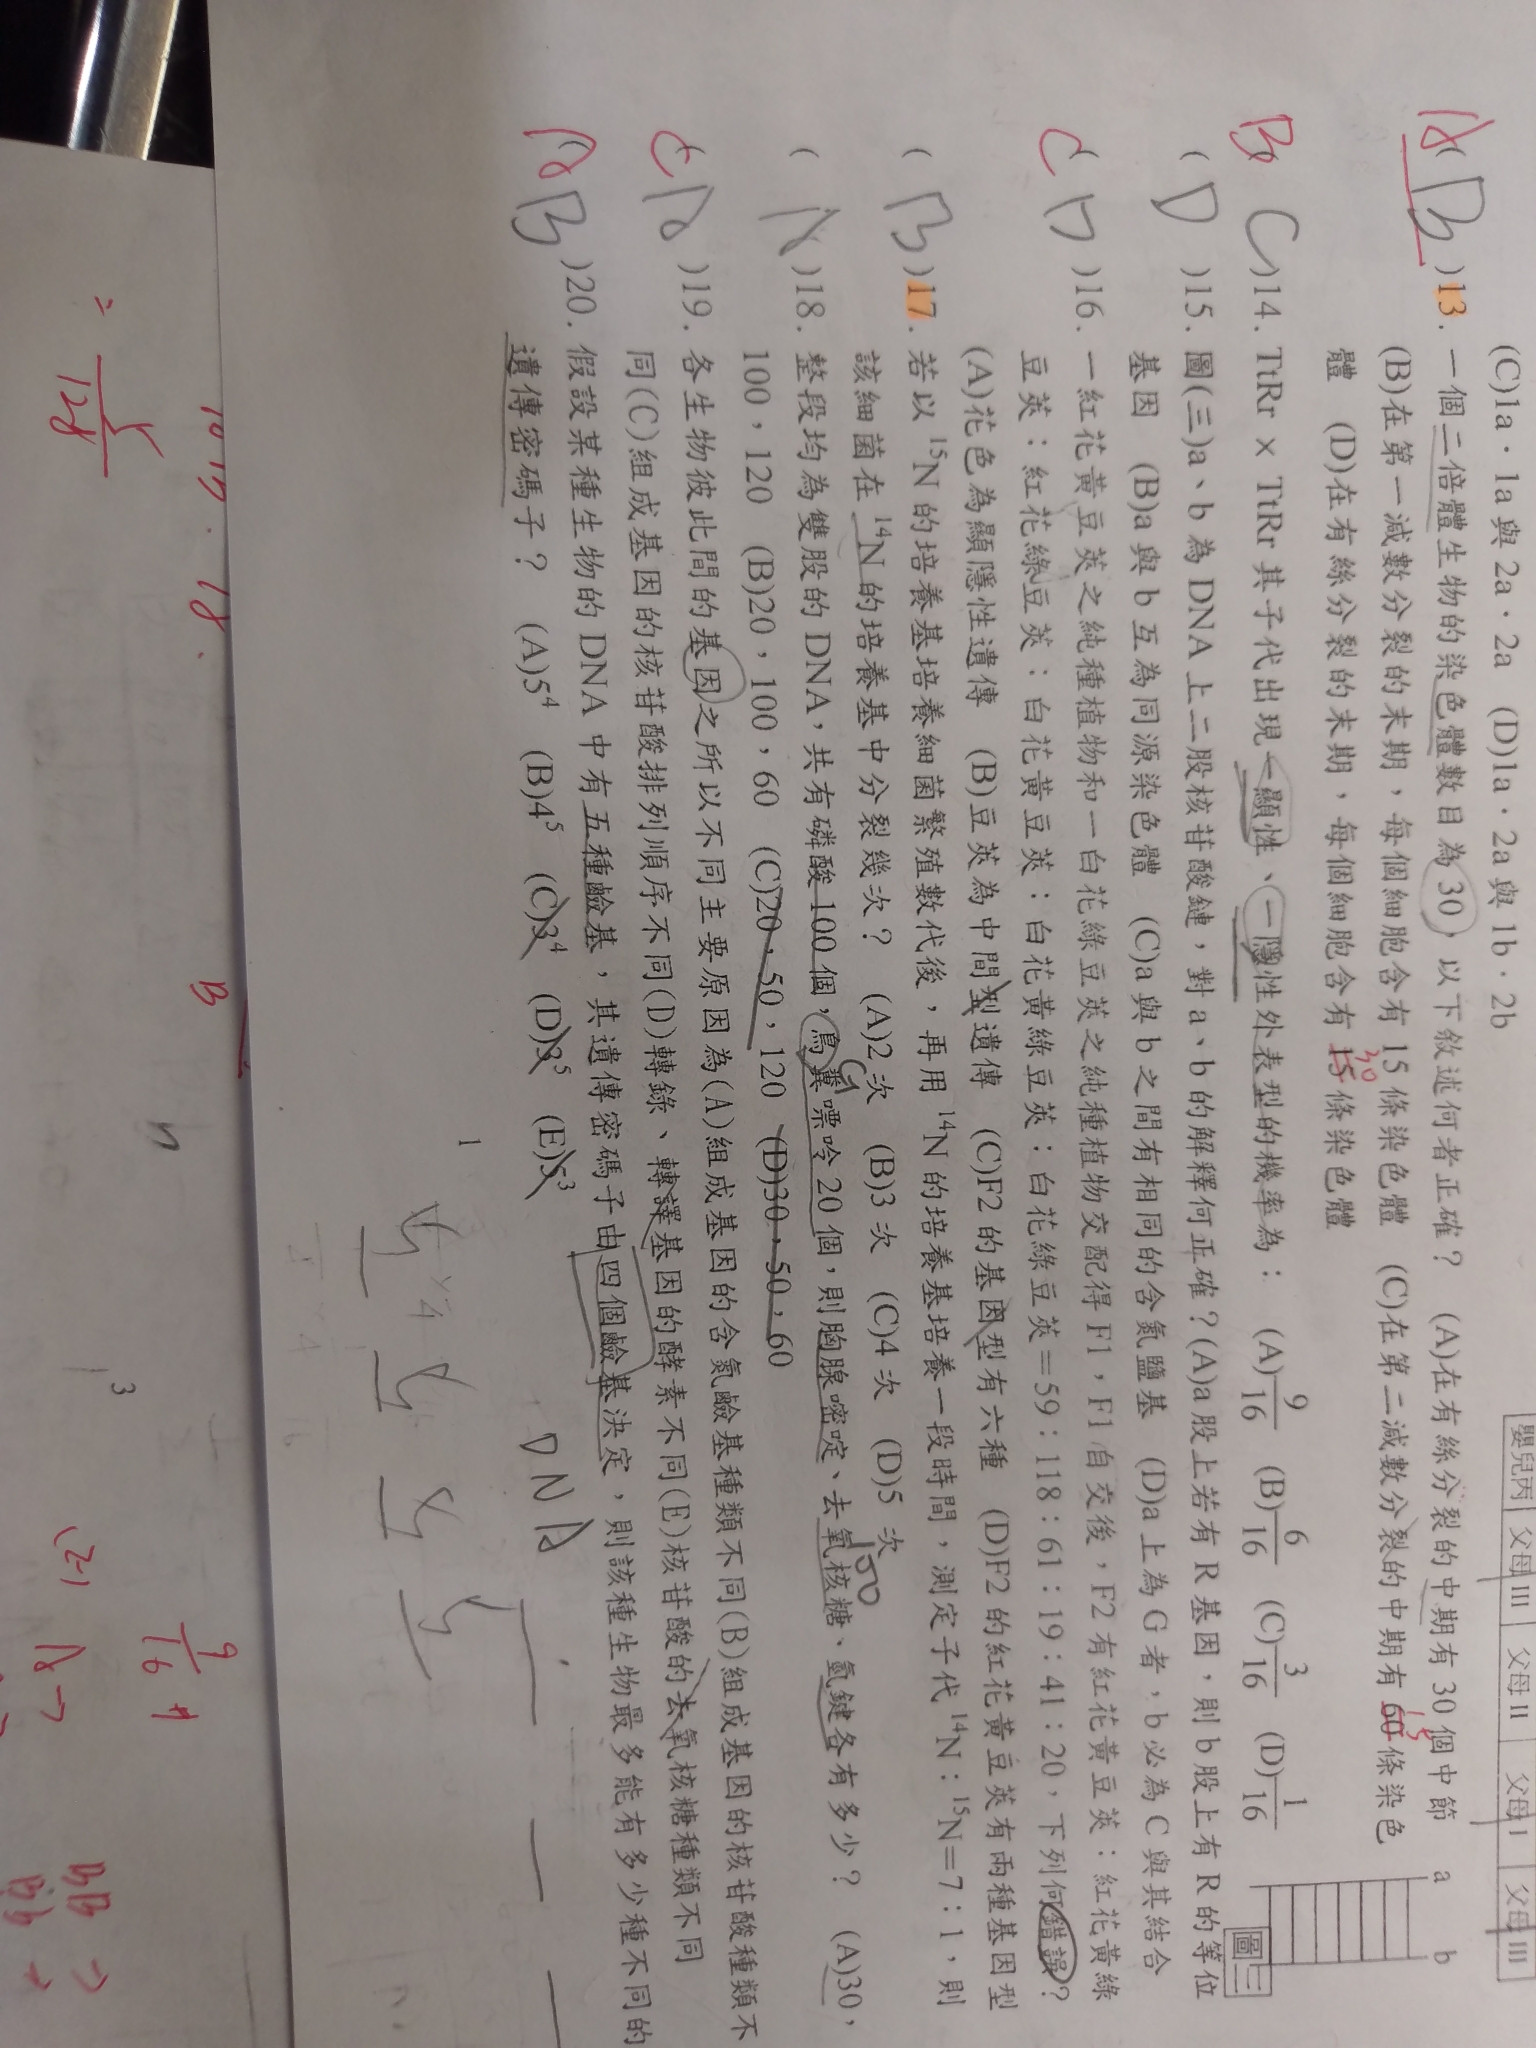 嬰兒丙 父母III 父母II 父母I 父母III
(C)1a、1a與2a、2a (D)1a、2a與1b、2b
A B )13. 一個二倍體生物的染色體數目為30，以下敘述何者正確？ (A)在有絲分裂的中期有30個中節
(B)在第一減數分裂的末期，每個細胞含有15條染色體 (C)在第二減數分裂的中期有60條染色
體 (D)在有絲分裂的末期，每個細胞含有15條染色體
30
B C )14. TtRr × TtRr 其子代出現一顯性、一隱性外表型的機率為： (A)9/16 (B)6/16 (C)3/16 (D)1/16
( D )15. 圖(三)a、b為DNA上二股核苷酸鏈，對a、b的解釋何正確？(A)a股上若有R基因，則b股上有R的等位
基因 (B)a與b互為同源染色體 (C)a與b之間有相同的含氮鹽基 (D)a上為G者，b必為C與其結合
a b
圖三
C D )16. 一紅花黃豆莢之純種植物和一白花綠豆莢之純種植物交配得F1，F1自交後，F2有紅花黃豆莢：紅花黃綠
豆莢：紅花綠豆莢：白花黃豆莢：白花黃綠豆莢：白花綠豆莢＝59：118：61：19：41：20，下列何錯誤？
(A)花色為顯隱性遺傳 (B)豆莢為中間型遺傳 (C)F2的基因型有六種 (D)F2的紅花黃豆莢有兩種基因型
( B )17. 若以 15N 的培養基培養細菌繁殖數代後，再用 14N 的培養基培養一段時間，測定子代 14N：15N＝7：1，則
該細菌在 14N 的培養基中分裂幾次？ (A)2次 (B)3次 (C)4次 (D)5次
( A )18. 整段均為雙股的DNA，共有磷酸100個，鳥糞嘌呤20個，則胸腺嘧啶、去氧核糖、氫鍵各有多少？ (A)30，
100，120 (B)20，100，60 (C)20，50，120 (D)30，50，60
G
C A )19. 各生物彼此間的基因之所以不同主要原因為(A)組成基因的含氮鹼基種類不同(B)組成基因的核苷酸種類不
同(C)組成基因的核苷酸排列順序不同(D)轉錄、轉譯基因的酵素不同(E)核苷酸的去氧核糖種類不同
A B )20. 假設某種生物的DNA中有五種鹼基，其遺傳密碼子由四個鹼基決定，則該種生物最多能有多少種不同的
遺傳密碼子？ (A)5⁴ (B)4⁵ (C)3⁴ (D)3⁵ (E)5³
DNA
1
B
n
3
(2)
9/16
BB
Bb